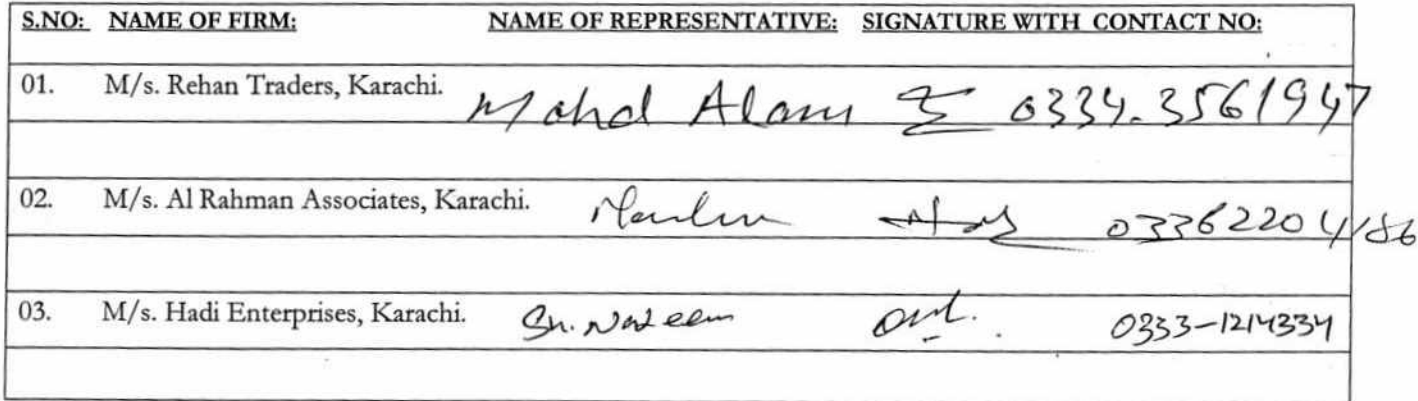 S.NO: NAME OF FIRM: NAME OF REPRESENTATIVE: SIGNATURE WITH CONTACT NO:
01. M/s. Rehan Traders, Karachi. Mohd Alam 0334.3561947
02. M/s. Al Rahman Associates, Karachi.
03. M/s. Hadi Enterprises, Karachi. Sh. Nadeem 0333-1214334